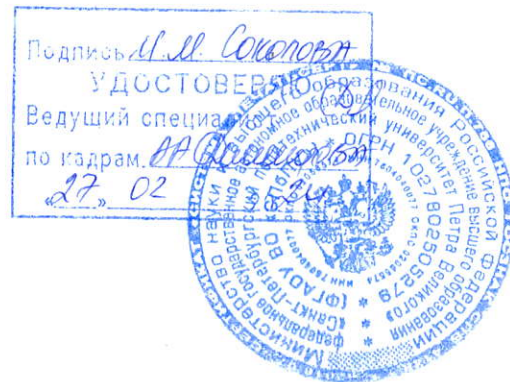 Подпись И.И. Соколова
УДОСТОВЕРЯЮ
Ведущий специалист
по кадрам
«27» 02
Министерство науки и высшего образования Российской Федерации
федеральное государственное автономное образовательное учреждение высшего образования
«Санкт-Петербургский политехнический университет Петра Великого»
(ФГАОУ ВО «
ОГРН 1027802505279
ИНН 7804040077